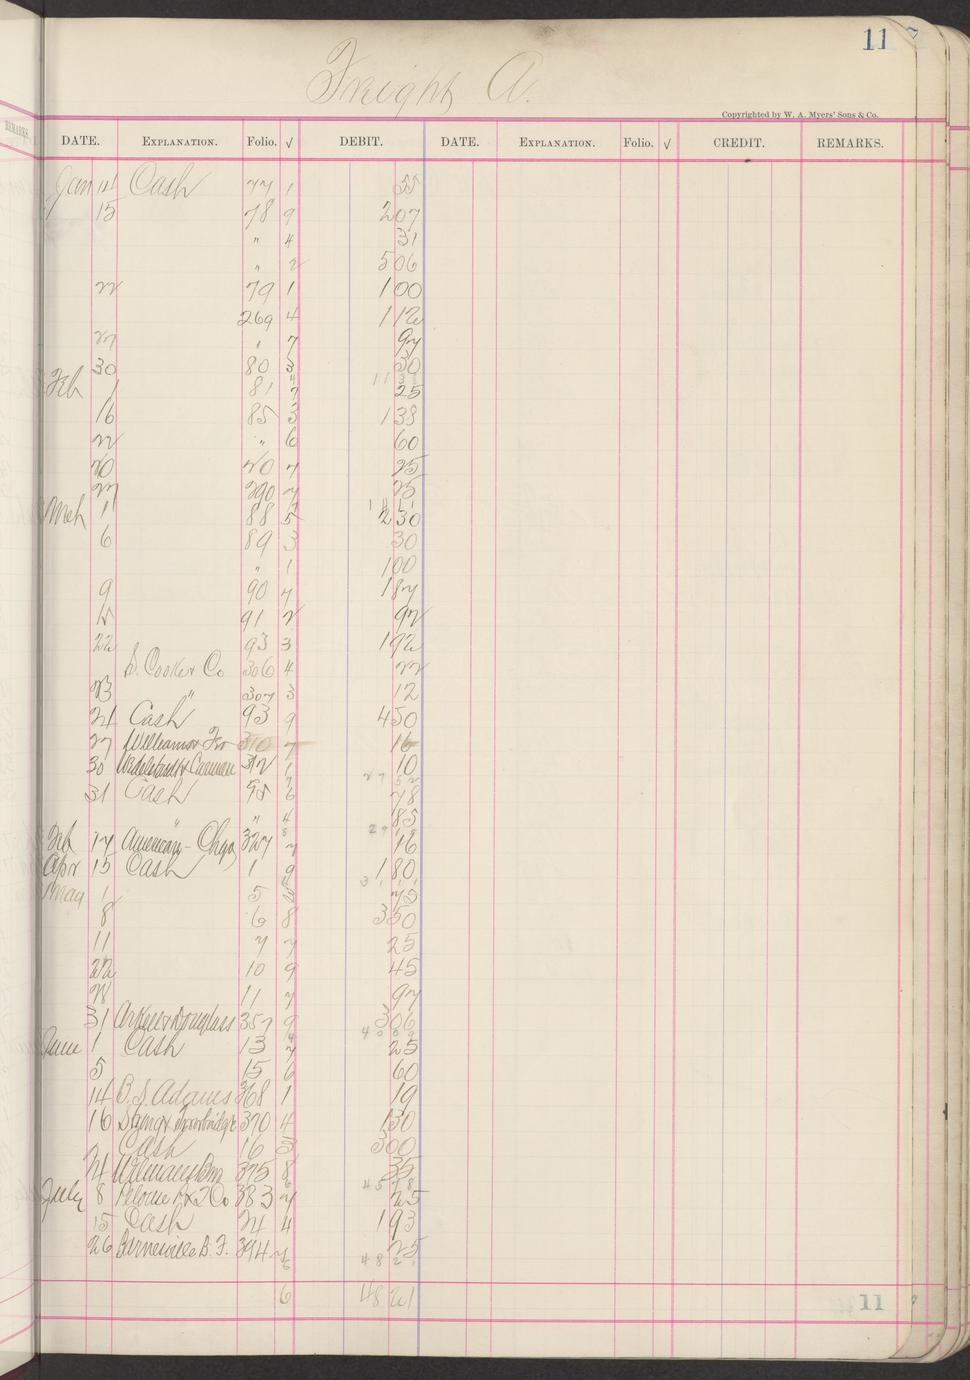 11
Freight A.
Copyrighted by W. A. Myers' Sons & Co.
DATE. EXPLANATION. Folio. √ DEBIT. DATE. EXPLANATION. Folio. √ CREDIT. REMARKS.
Jan 14 Cash 77 1 55
15 78 9 207
" 4 31
" 2 506
22 79 1 100
269 4 112
27 " 7 97
30 80 3 30
Feb 1 81 7 25
16 85 3 138
22 " 6 60
20 20 7 25
27 290 7 25
Mch 1 88 5 230
6 89 3 30
" 1 100
9 90 7 187
15 91 2 92
22 93 3 192
S. Cooke & Co 306 4 22
23 " 307 3 12
24 Cash 93 9 450
27 Williams 310 7 16
30 Carman 312 1 10
31 Cash 95 6 78
" 4 85
Feb 17 American 327 7 16
Apr 15 Cash 1 9 180
May 1 5 75
8 6 8 350
11 7 7 25
22 10 9 45
28 11 7 97
31 Arkell & Douglass 357 9 306
June 1 Cash 13 7 25
5 15 6 60
14 B. S. Adams 368 1 19
16 Trowbridge 370 4 130
Cash 16 3 300
24 375 8 35
July 8 Pelouse & Co 383 7 25
15 Cash 24 4 193
26 Barnesville B. F. 394 7 25
48 21
6 48 21
11